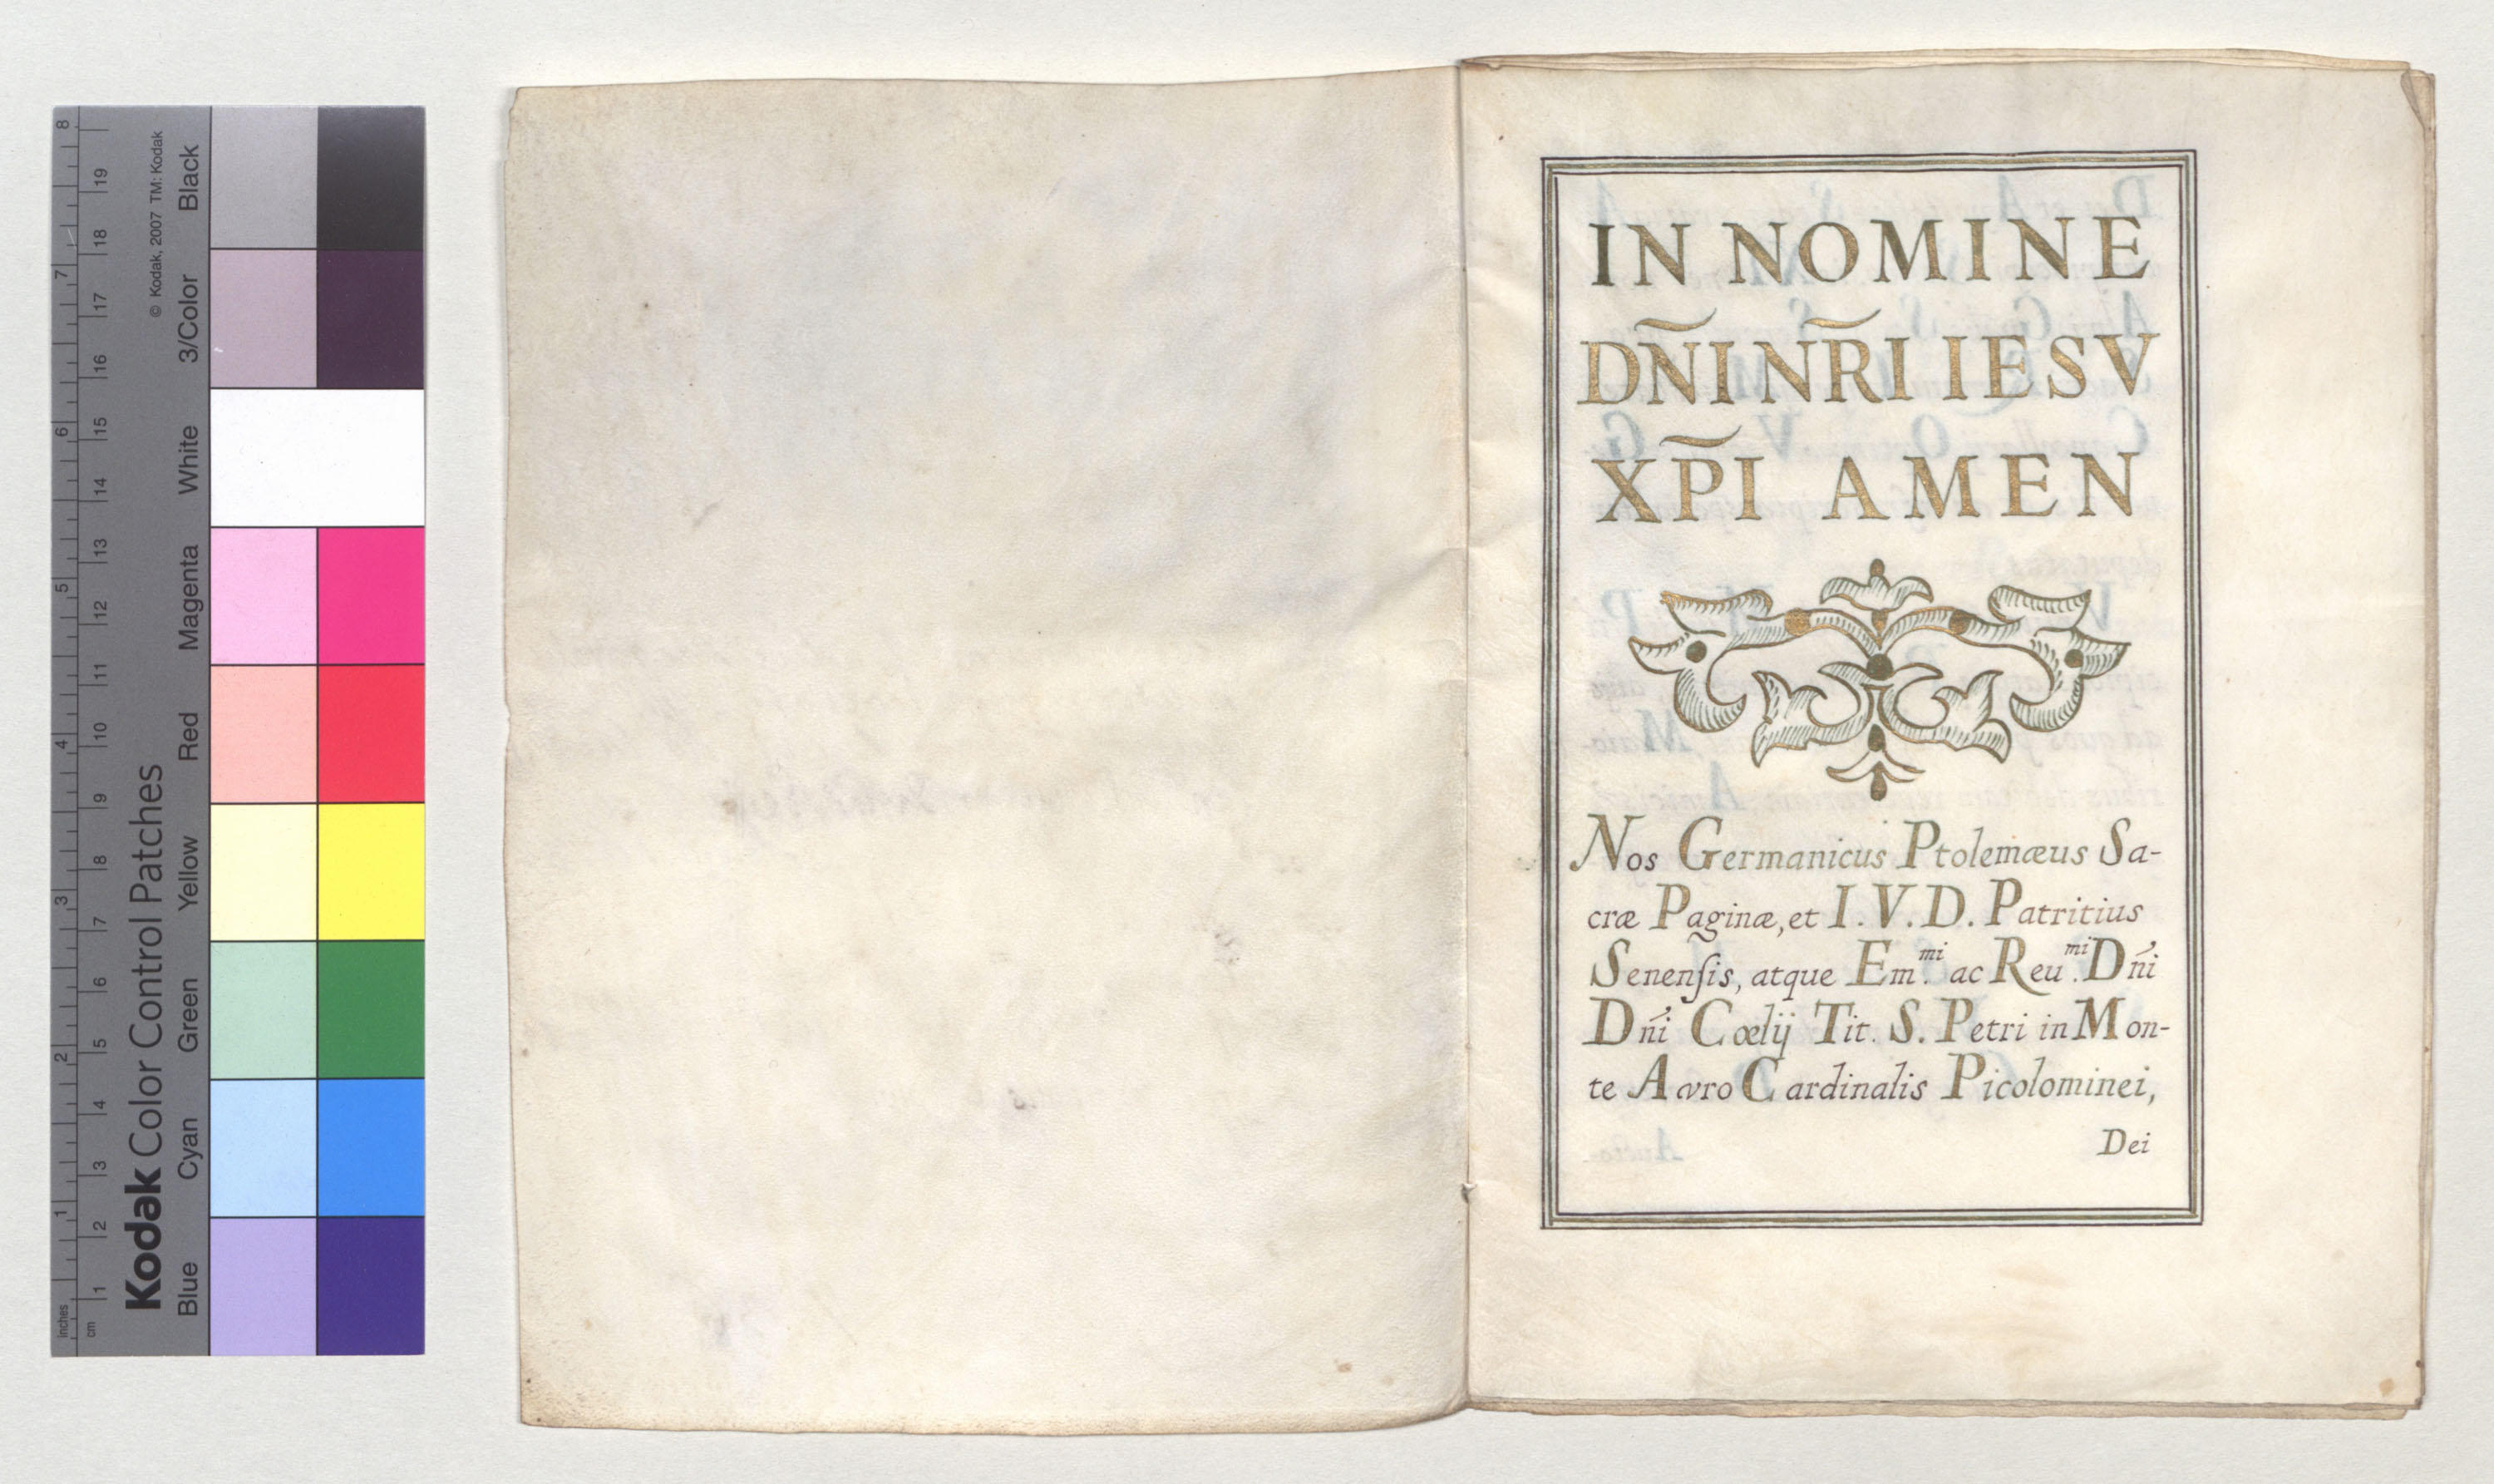 Kodak Color Control Patches
© Kodak, 2007 TM: Kodak
Blue Cyan Green Yellow Red Magenta White 3/Color Black
inches 1 2 3 4 5 6 7 8
cm 1 2 3 4 5 6 7 8 9 10 11 12 13 14 15 16 17 18 19
IN NOMINE
DÑI NR̃I IESV
XP̃I AMEN
Nos Germanicus Ptolemæus Sa-
cræ Paginæ, et I. V. D. Patritius
Senenſis, atque Em.mi ac Reu.mi Dn̄i
Dn̄i Cœlij Tit. S. Petri in Mon-
te Avro Cardinalis Picolominei,
Dei